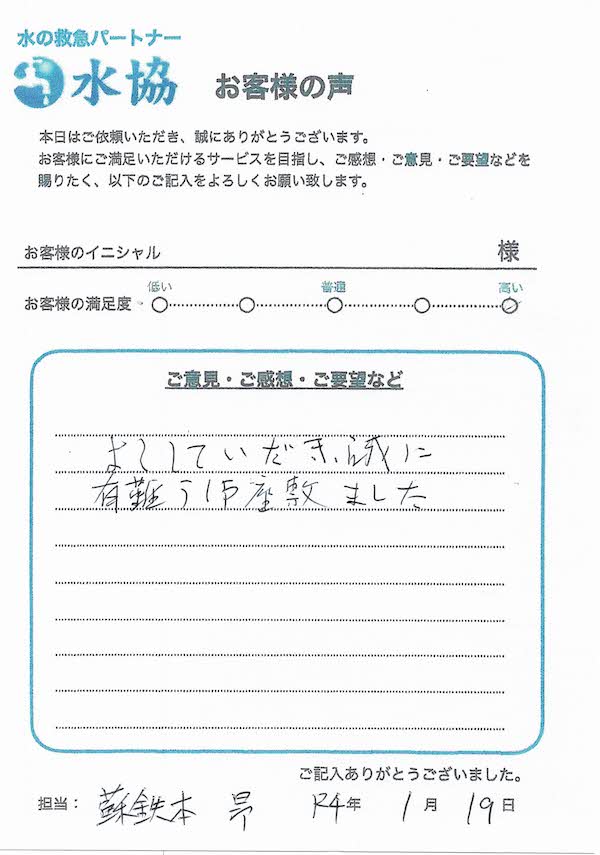 水の救急パートナー
水協 お客様の声
本日はご依頼いただき、誠にありがとうございます。
お客様にご満足いただけるサービスを目指し、ご感想・ご意見・ご要望などを
賜りたく、以下のご記入をよろしくお願い致します。
お客様のイニシャル 様
低い 普通 高い
お客様の満足度
ご意見・ご感想・ご要望など
よくしていただき、誠に
有難う御座敷ました
ご記入ありがとうございました。
担当: 蘇鉄本 昴 R4年 1月 19日